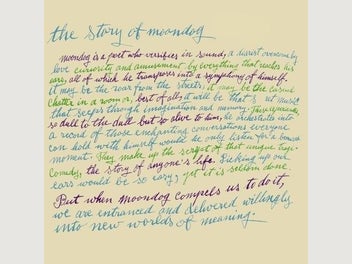 the story of moondog
moondog is a poet who versifies in sound, a diarist overcome by
love curiosity and amusement by everything that reaches his
ears, all of which he transposes into a symphony of himself.
it may be the roar from the streets, it may be the casual
chatter in a room or, best of all, it will be that secret music
that seeps through imagination and memory.
so dull to the dull but so alive to him, he orchestrates into
a record of those enchanting conversations everyone
can hold with himself would he only listen for a
moment. They make up the script of that unique tragi-
comedy, the story of anyone's life. Picking up our
ears would be so easy, yet it is seldom done.
But when moondog compels us to do it,
we are entranced and delivered willingly
into new worlds of meaning.